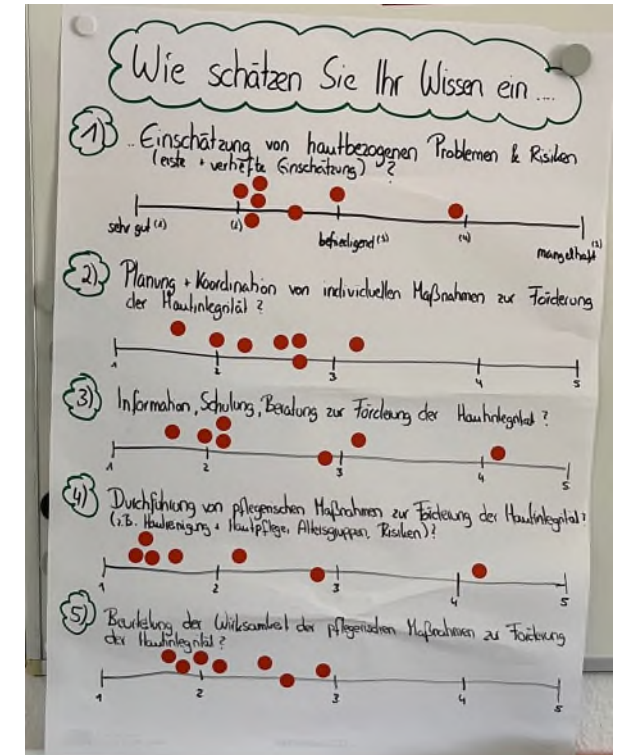 Wie schätzen Sie Ihr Wissen ein ....
1) .. Einschätzung von hautbezogenen Problemen & Risiken
(erste + vertiefte Einschätzung) ?
sehr gut (1) (2) befriedigend (3) (4) mangelhaft (5)
2) Planung + Koordination von individuellen Maßnahmen zur Förderung
der Hautintegrität ?
1 2 3 4 5
3) Information, Schulung, Beratung zur Förderung der Hautintegrität ?
1 2 3 4 5
4) Durchführung von pflegerischen Maßnahmen zur Förderung der Hautintegrität?
(z.B. Hautreinigung + Hautpflege, Altersgruppen, Risiken)?
1 2 3 4 5
5) Beurteilung der Wirksamkeit der pflegerischen Maßnahmen zur Förderung
der Hautintegrität ?
1 2 3 4 5